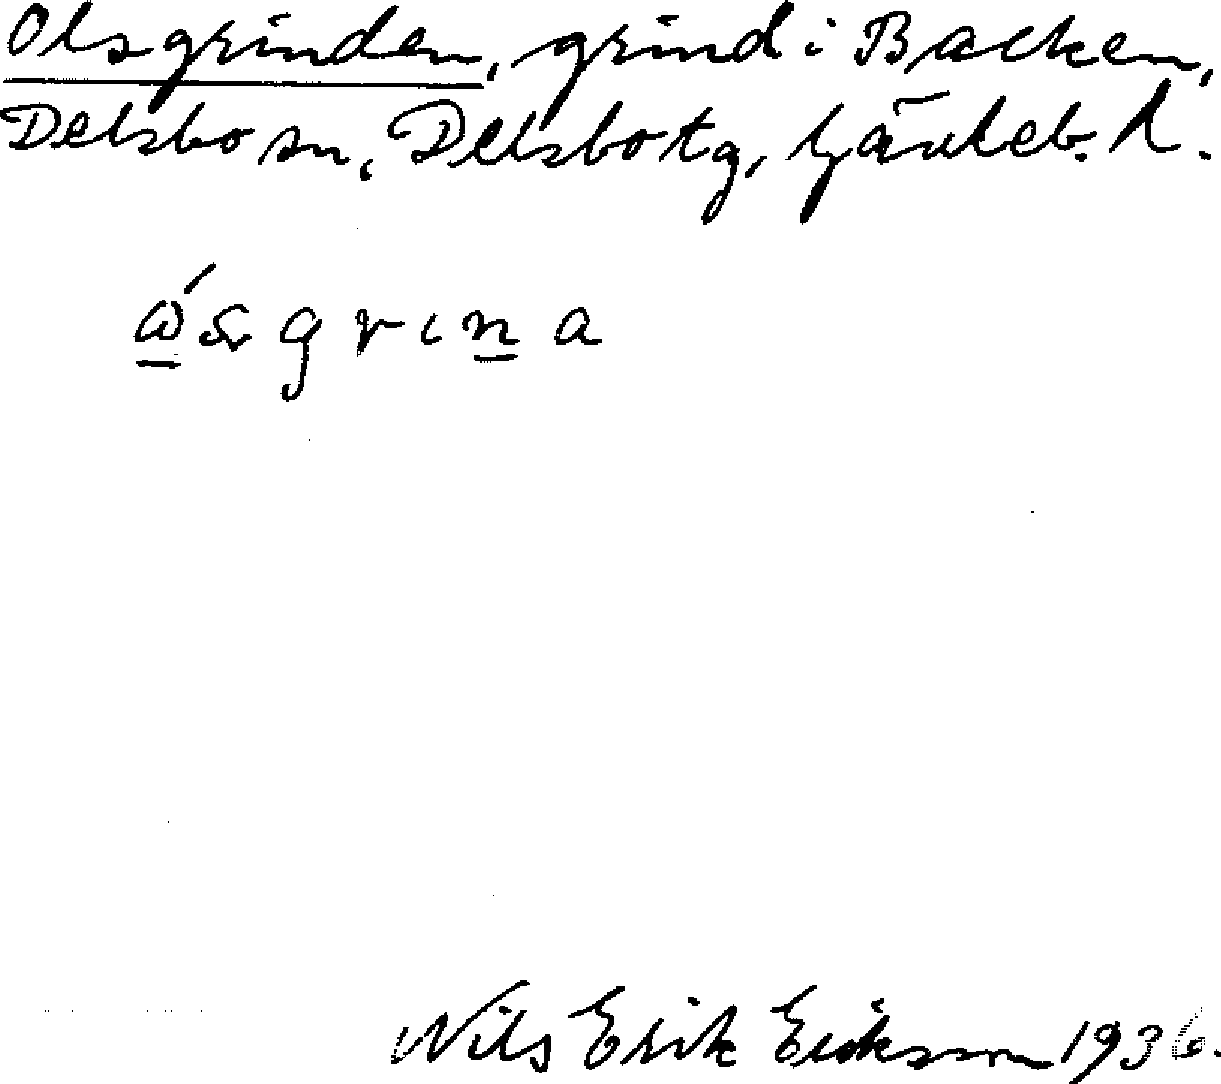 Olsgrinden, grind i Backen,
Delsbo sn, Delsbo tg, Gävleb. l.
ώsgrına
Nils Erik Eriksson 1936.